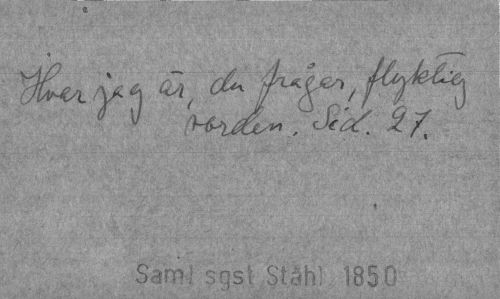 Hvar jag är, du frågar, flyktig
vorden. Sid. 27.
Saml sgst Ståhl 1850